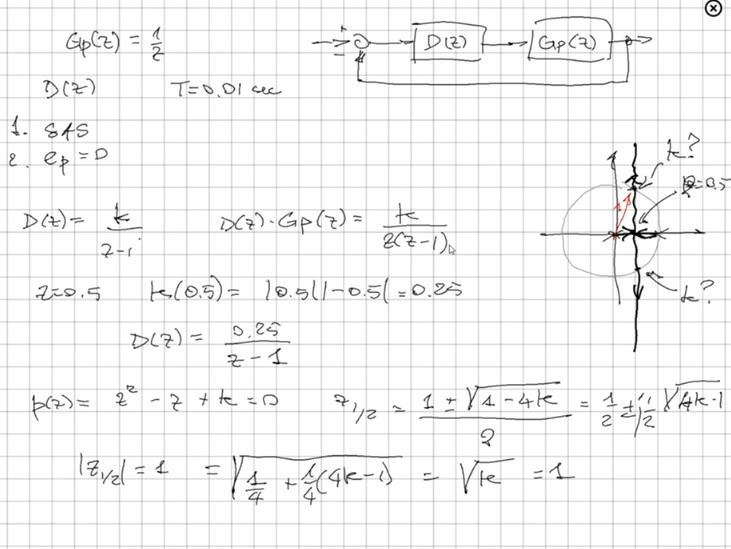 Gp(z) = 1/z
+
−
D(z)
Gp(z)
D(z) T=0.01 sec
1. SAS
2. ep=0
k?
k=0.5
D(z) = k/(z-1) D(z)·Gp(z) = k/(z(z-1))
k?
z=0.5 k(0.5) = |0.5||-0.5| = 0.25
D(z) = 0.25/(z-1)
p(z) = z² - z + k = 0 z₁/₂ = (1 ± √(1-4k))/2 = 1/2 ± j 1/2 √(4k-1)
|z₁/₂| = 1 = √(1/4 + 1/4(4k-1)) = √k = 1